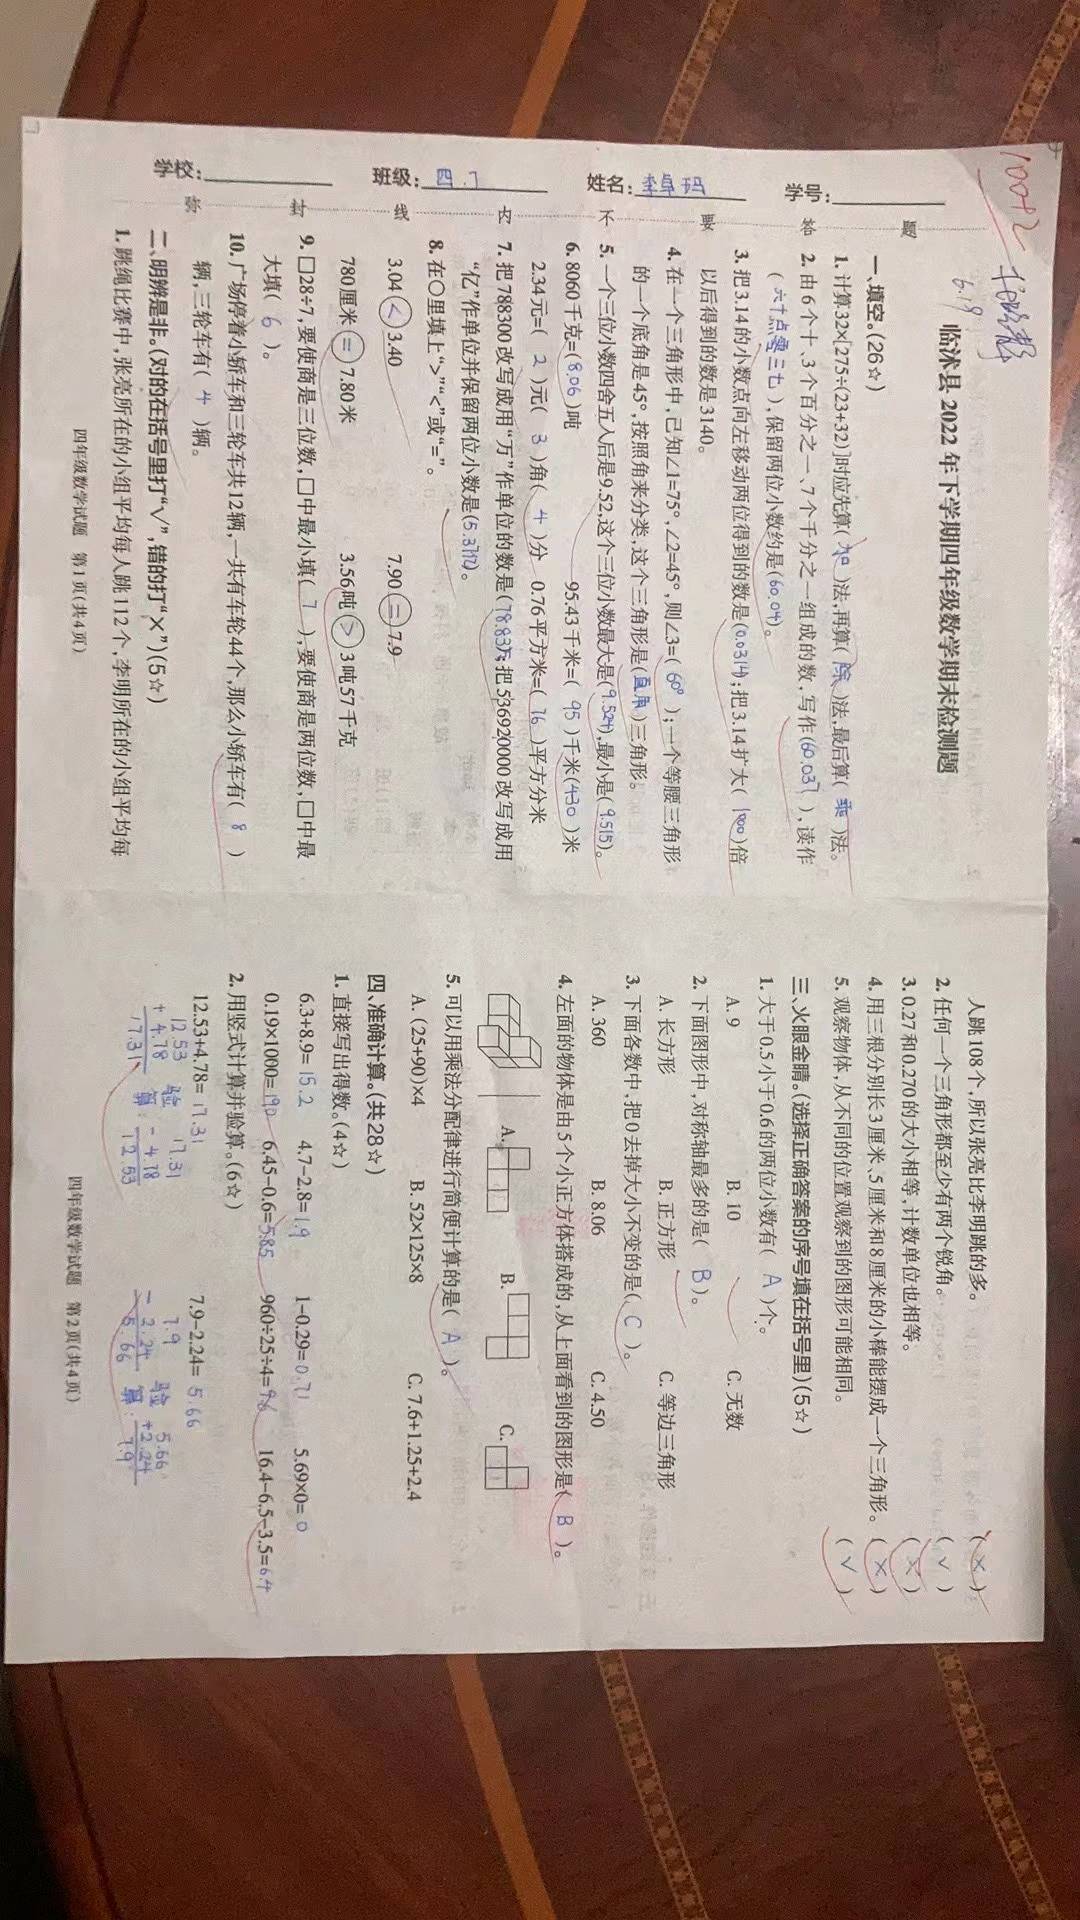 100+2
6.19
学校:
班级: 四.7
姓名:
学号:
密 封 线 内 不 要 答 题
临沭县2022年下学期四年级数学期末检测题
一、填空。(26☆)
1. 计算32×[275÷(23+32)]时应先算( 加 )法,再算( 除 )法,最后算( 乘 )法。
2. 由6个十、3个百分之一、7个千分之一组成的数,写作(60.037),读作
(六十点零三七),保留两位小数约是(60.04)。
3. 把3.14的小数点向左移动两位得到的数是(0.0314);把3.14扩大( 1000 )倍
以后得到的数是3140。
4. 在一个三角形中,已知∠1=75°,∠2=45°,则∠3=( 60° );一个等腰三角形
的一个底角是45°,按照角来分类,这个三角形是(直角)三角形。
5. 一个三位小数四舍五入后是9.52,这个三位小数最大是(9.524),最小是(9.515)。
6. 8060千克=(8.06)吨 95.43千米=( 95 )千米(430)米
2.34元=( 2 )元( 3 )角( 4 )分 0.76平方米=( 76 )平方分米
7. 把788300改写成用“万”作单位的数是(78.83万);把536920000改写成用
“亿”作单位并保留两位小数是(5.37亿)。
8. 在○里填上“>”“<”或“=”。
3.04 < 3.40 7.90 = 7.9
780厘米 = 7.80米 3.56吨 > 3吨57千克
9. □28÷7,要使商是三位数,□中最小填( 7 ),要使商是两位数,□中最
大填( 6 )。
10. 广场停着小轿车和三轮车共12辆,一共有车轮44个,那么小轿车有( 8 )
辆,三轮车有( 4 )辆。
二、明辨是非。(对的在括号里打“√”,错的打“×”)(5☆)
1. 跳绳比赛中,张亮所在的小组平均每人跳112个,李明所在的小组平均每
四年级数学试题 第1页(共4页)
人跳108个,所以张亮比李明跳的多。 ( × )
2. 任何一个三角形都至少有两个锐角。 ( √ )
3. 0.27和0.270的大小相等,计数单位也相等。 ( × )
4. 用三根分别长3厘米、5厘米和8厘米的小棒能摆成一个三角形。 ( × )
5. 观察物体,从不同的位置观察到的图形可能相同。 ( √ )
三、火眼金睛。(选择正确答案的序号填在括号里)(5☆)
1. 大于0.5小于0.6的两位小数有( A )个。
A. 9 B. 10 C. 无数
2. 下面图形中,对称轴最多的是( B )。
A. 长方形 B. 正方形 C. 等边三角形
3. 下面各数中,把0去掉大小不变的是( C )。
A. 360 B. 8.06 C. 4.50
4. 左面的物体是由5个小正方体搭成的,从上面看到的图形是( B )。
A. B. C.
5. 可以用乘法分配律进行简便计算的是( A )。
A. (25+90)×4 B. 52×125×8 C. 7.6+1.25+2.4
四、准确计算。(共28☆)
1. 直接写出得数。(4☆)
6.3+8.9=15.2 4.7-2.8=1.9 1-0.29=0.71 5.69×0=0
0.19×1000=190 6.45-0.6=5.85 960÷25÷4=9.6 16.4-6.5-3.5=6.4
2. 用竖式计算并验算。(6☆)
12.53+4.78=17.31 7.9-2.24=5.66
12.53 验 17.31 7.9 验 5.66
+ 4.78 算: - 4.78 - 2.24 算: +2.24
17.31 12.53 5.66 7.9
四年级数学试题 第2页(共4页)